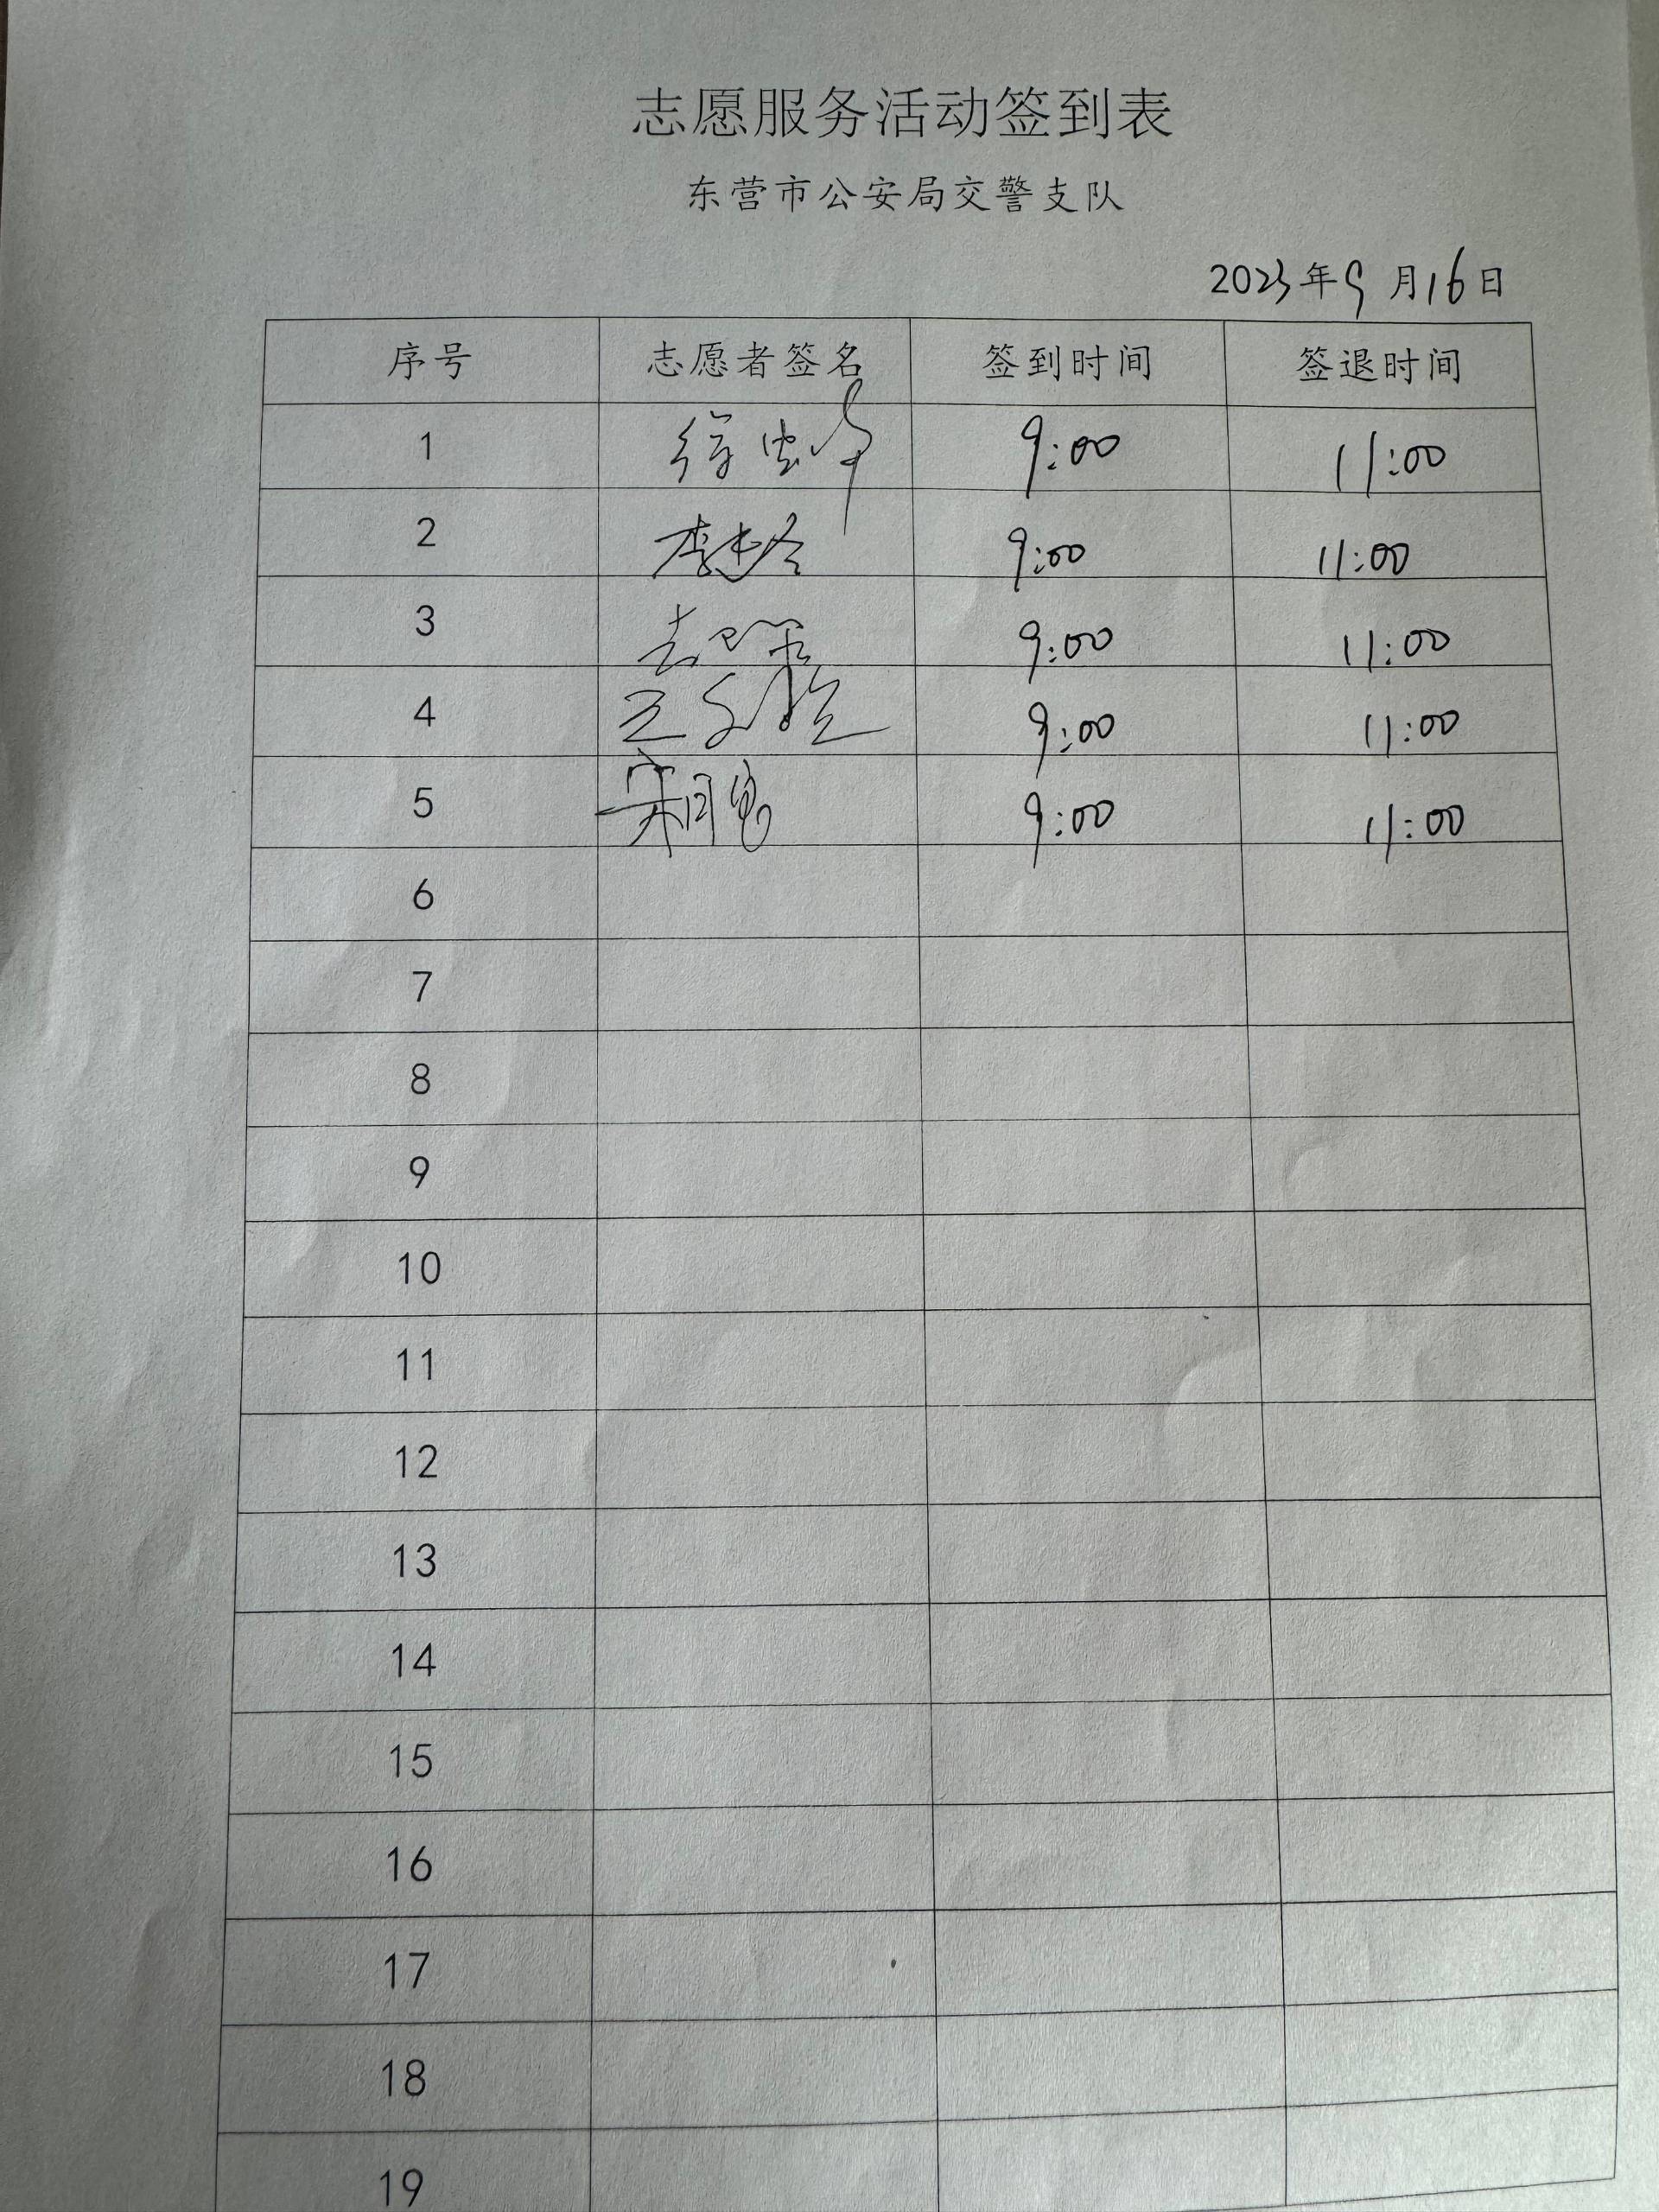 志愿服务活动签到表
东营市公安局交警支队
2023年9月16日
序号 志愿者签名 签到时间 签退时间
1 9:00 11:00
2 李 9:00 11:00
3 9:00 11:00
4 王 9:00 11:00
5 宋 9:00 11:00
6
7
8
9
10
11
12
13
14
15
16
17
18
19